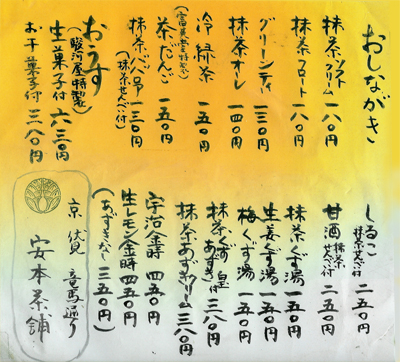 おしながき
抹茶ソフトクリーム 一八〇円
抹茶フロート 一八〇円
グリーンティ 一三〇円
抹茶オーレ 一四〇円
冷緑茶 一五〇円
茶だんご 一五〇円
抹茶パッ品 一三〇円
(抹茶せんべい付)
おうす
(駿河屋特製)
生菓子付 六三〇円
お干菓子付 三八〇円
しるこ 二五〇円
抹茶せんべい付
甘酒 二五〇円
抹茶せんべい付
抹茶くず湯 一五〇円
生姜くず湯 一五〇円
梅くず湯 一五〇円
抹茶くず あずき 三八〇円
抹茶あずきクリーム 三八〇円
宇治金時 四五〇円
生レモン金時 四五〇円
(あずきなし 三五〇円)
京 伏見 竜馬通り
安本茶舗